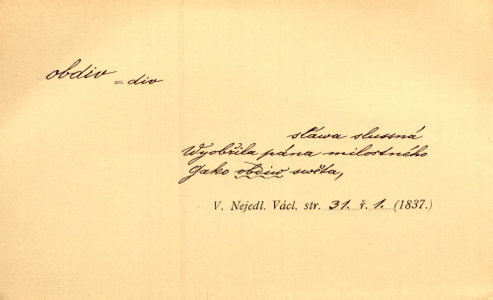 obdiv
= div
sláwa slussná
Wyobřila pána milostného
Jako obdiw swěta,
V. Nejedl. Václ. str. 31. ř. 1. (1837.)